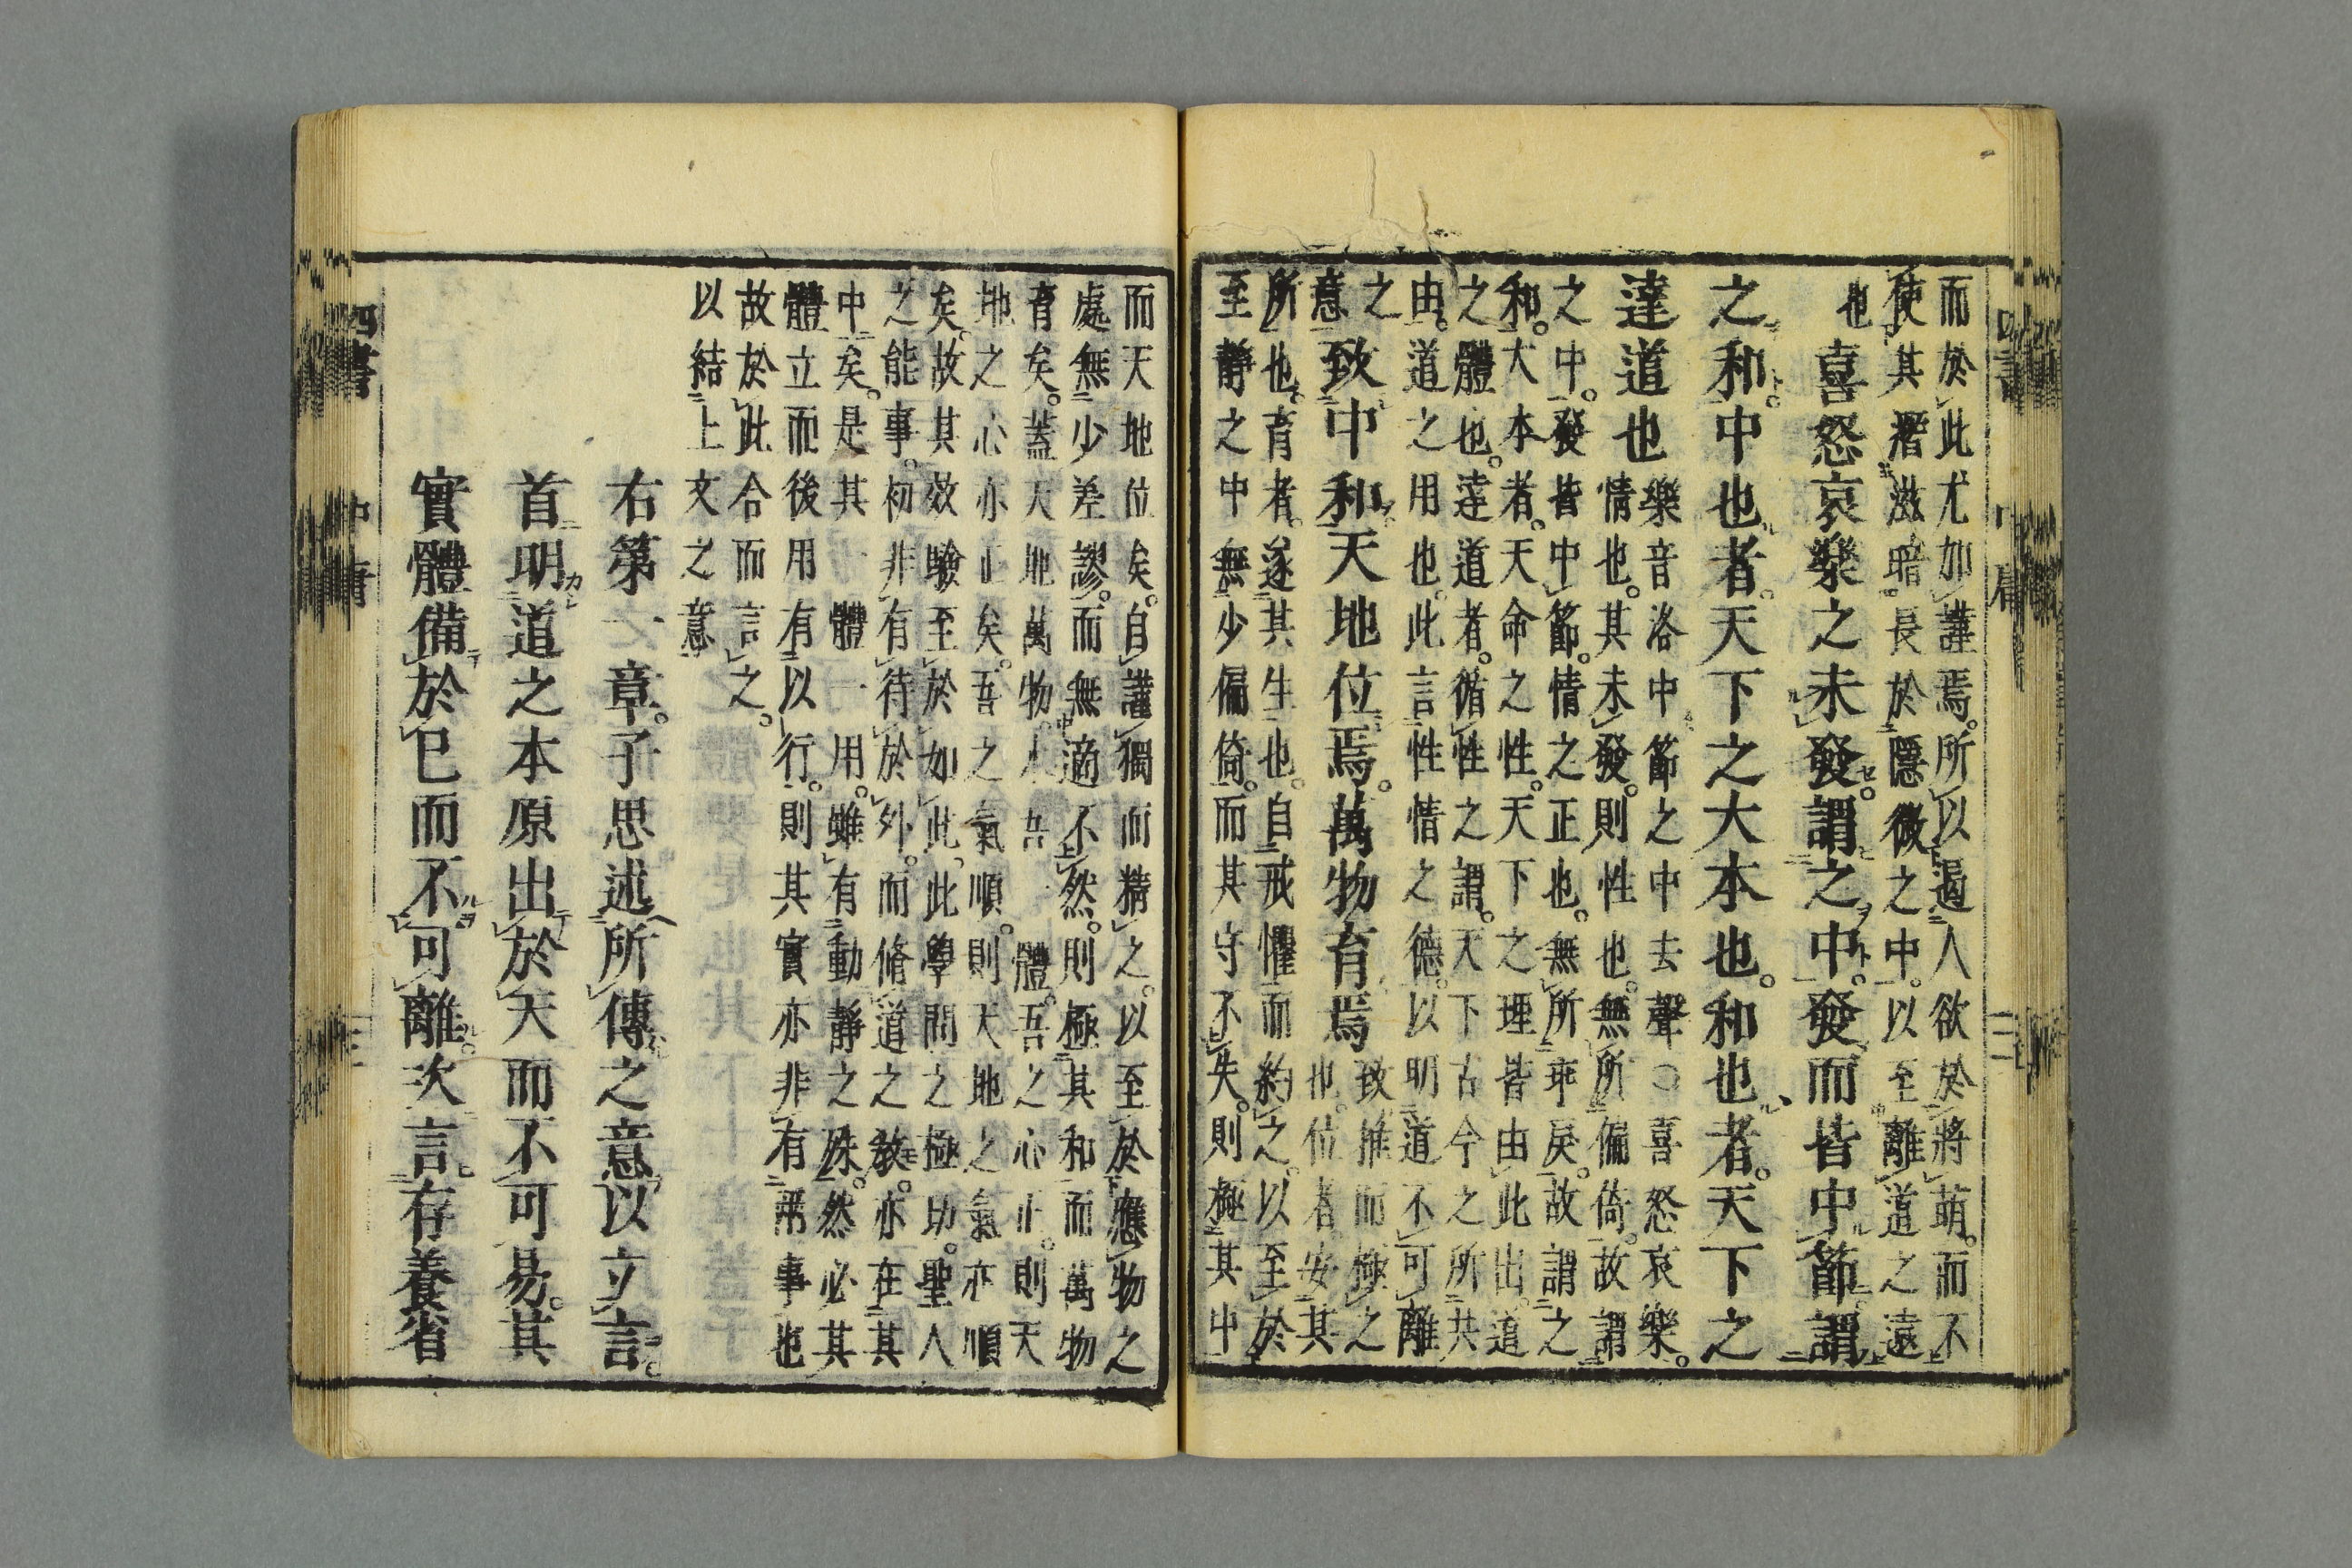 而於此尤加謹焉。所以遏人欲於將萌。而不
使其潛滋暗長於隱微之中。以至離道之遠
也
喜怒哀樂之未發。謂之中。發而皆中節。謂
之和。中也者。天下之大本也。和也者。天下之
達道也
樂音洛中節之中去聲○喜怒哀樂。
情也。其未發。則性也。無所偏倚。故謂
之中。發皆中節。情之正也。無所乖戾。故謂之
和。大本者。天命之性。天下之理皆由此出。道
之體也。達道者。循性之謂。天下古今之所共
由。道之用也。此言性情之德。以明道不可離
之
意
致中和。天地位焉。萬物育焉
致推而極之
也。位者安其
所也。育者。遂其生也。自戒懼而約之。以至於
至靜之中無少偏倚。而其守不失。則極其中
而天地位矣。自謹獨而精之。以至於應物之
處無少差謬。而無適不然。則極其和而萬物
育矣。蓋天地萬物。本吾一體。吾之心正。則天
地之心亦正矣。吾之氣順。則天地之氣亦順
矣。故其效驗至於如此。此學問之極功。聖人
之能事。初非有待於外。而脩道之教。亦在其
中矣。是其一體一用。雖有動靜之殊。然必其
體立而後用有以行。則其實亦非有兩事也
故於此合而言之。
以結上文之意
右第一章。子思述所傳之意以立言。
首明道之本原出於天而不可易。其
實體備於已而不可離。次言存養省
四書 中庸 三